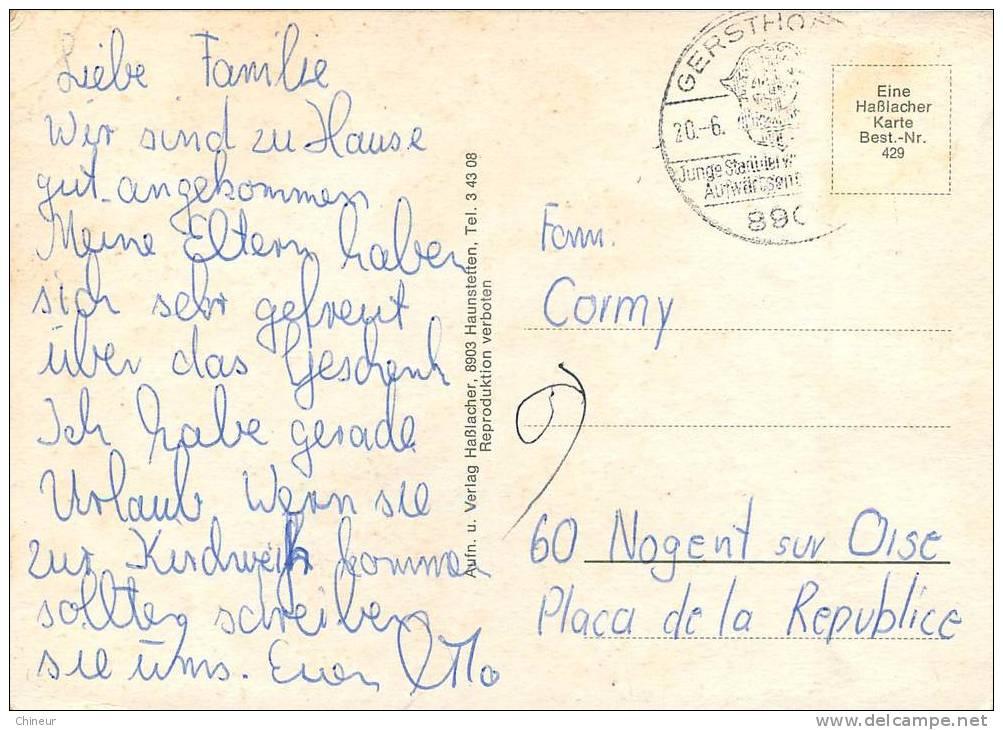 Liebe Familie
Wir sind zu Hause
gut angekommen
Meine Eltern haben
sich sehr gefreut
über das Geschenk
Ich habe gerade
Urlaub. Wenn sie
zur Kirchweih kommen
sollten schreiben
sie uns. Euer Otto
Aufn. u. Verlag Haßlacher, 8903 Haunstetten, Tel. 3 43 08
Reproduktion verboten
GERSTHO
20.-6.
Junge Stadt
890
Eine
Haßlacher
Karte
Best.-Nr.
429
Fam.
Cormy
60 Nogent sur Oise
Placa de la Republice
Chineur
delcampe.net